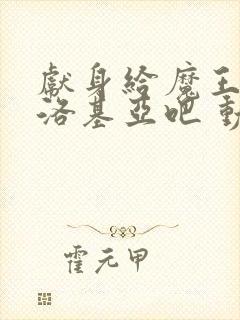 獻身給魔王
洛基亞吧 動
霍元甲